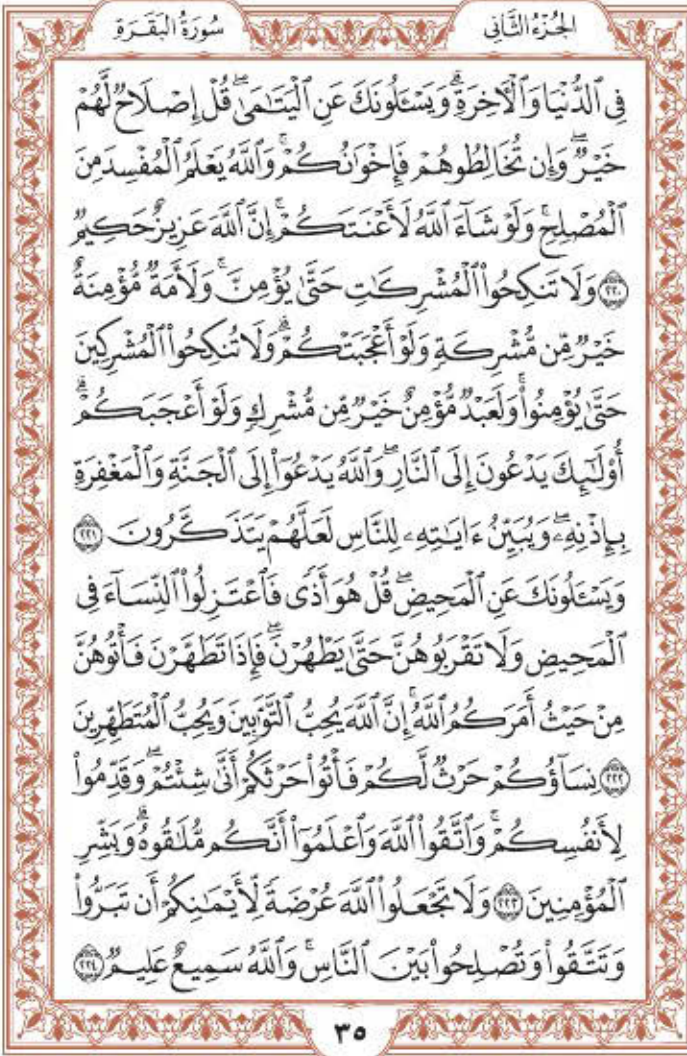 الجُزْءُ الثَّانِى
سُورَةُ الْبَقَرَةِ
فِى ٱلدُّنْيَا وَٱلْأَخِرَةِ ۗ وَيَسْـَٔلُونَكَ عَنِ ٱلْيَتَـٰمَىٰ ۖ قُلْ إِصْلَاحٌ لَّهُمْ
خَيْرٌ ۖ وَإِن تُخَالِطُوهُمْ فَإِخْوَٰنُكُمْ ۚ وَٱللَّهُ يَعْلَمُ ٱلْمُفْسِدَ مِنَ
ٱلْمُصْلِحِ ۚ وَلَوْ شَآءَ ٱللَّهُ لَأَعْنَتَكُمْ ۚ إِنَّ ٱللَّهَ عَزِيزٌ حَكِيمٌ
۝٢٢٠ وَلَا تَنكِحُوا۟ ٱلْمُشْرِكَـٰتِ حَتَّىٰ يُؤْمِنَّ ۚ وَلَأَمَةٌ مُّؤْمِنَةٌ
خَيْرٌ مِّن مُّشْرِكَةٍ وَلَوْ أَعْجَبَتْكُمْ ۗ وَلَا تُنكِحُوا۟ ٱلْمُشْرِكِينَ
حَتَّىٰ يُؤْمِنُوا۟ ۚ وَلَعَبْدٌ مُّؤْمِنٌ خَيْرٌ مِّن مُّشْرِكٍ وَلَوْ أَعْجَبَكُمْ ۗ
أُو۟لَـٰٓئِكَ يَدْعُونَ إِلَى ٱلنَّارِ ۖ وَٱللَّهُ يَدْعُوٓا۟ إِلَى ٱلْجَنَّةِ وَٱلْمَغْفِرَةِ
بِإِذْنِهِۦ ۖ وَيُبَيِّنُ ءَايَـٰتِهِۦ لِلنَّاسِ لَعَلَّهُمْ يَتَذَكَّرُونَ ۝٢٢١
وَيَسْـَٔلُونَكَ عَنِ ٱلْمَحِيضِ ۖ قُلْ هُوَ أَذًى فَٱعْتَزِلُوا۟ ٱلنِّسَآءَ فِى
ٱلْمَحِيضِ وَلَا تَقْرَبُوهُنَّ حَتَّىٰ يَطْهُرْنَ ۖ فَإِذَا تَطَهَّرْنَ فَأْتُوهُنَّ
مِنْ حَيْثُ أَمَرَكُمُ ٱللَّهُ ۚ إِنَّ ٱللَّهَ يُحِبُّ ٱلتَّوَّٰبِينَ وَيُحِبُّ ٱلْمُتَطَهِّرِينَ
۝٢٢٢ نِسَآؤُكُمْ حَرْثٌ لَّكُمْ فَأْتُوا۟ حَرْثَكُمْ أَنَّىٰ شِئْتُمْ ۖ وَقَدِّمُوا۟
لِأَنفُسِكُمْ ۚ وَٱتَّقُوا۟ ٱللَّهَ وَٱعْلَمُوٓا۟ أَنَّكُم مُّلَـٰقُوهُ ۗ وَبَشِّرِ
ٱلْمُؤْمِنِينَ ۝٢٢٣ وَلَا تَجْعَلُوا۟ ٱللَّهَ عُرْضَةً لِّأَيْمَـٰنِكُمْ أَن تَبَرُّوا۟
وَتَتَّقُوا۟ وَتُصْلِحُوا۟ بَيْنَ ٱلنَّاسِ ۗ وَٱللَّهُ سَمِيعٌ عَلِيمٌ ۝٢٢٤
٣٥